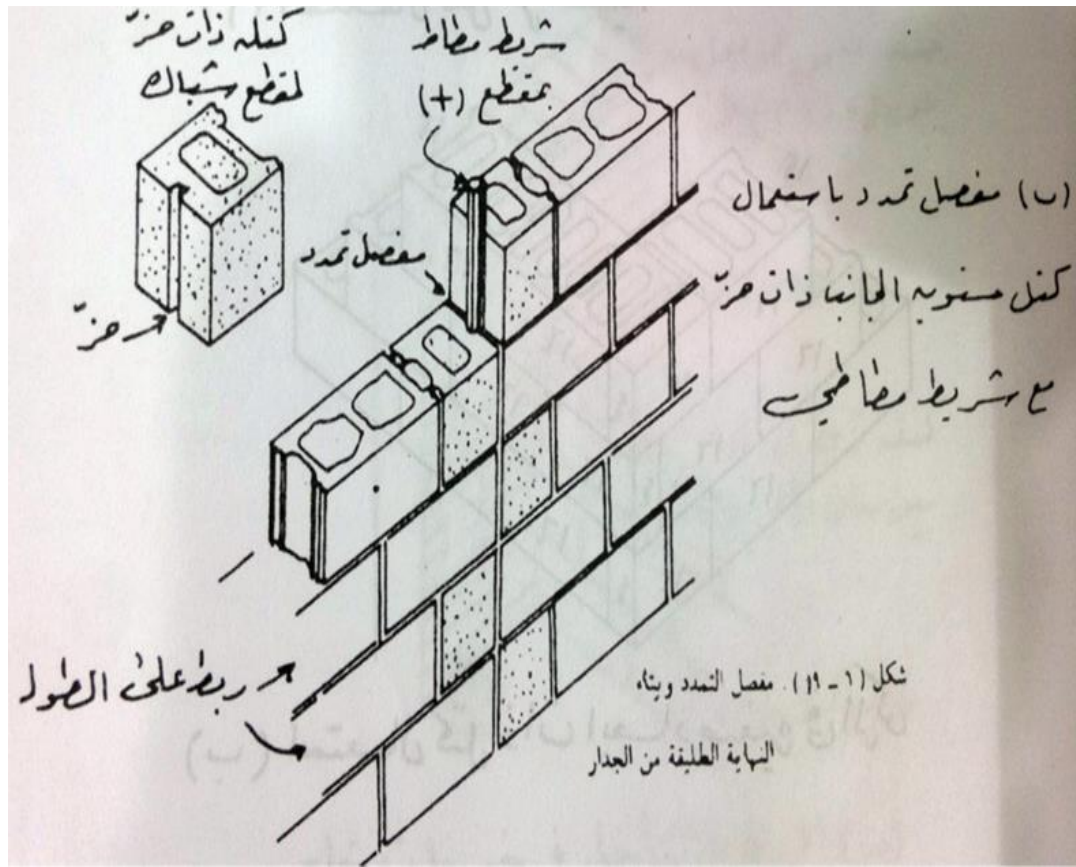 كتله ذات حزّ
لمقطع شباك
شريط مطاط
بمقطع (+)
مفصل تمدد
حزّ
(ب) مفصل تمدد باستعمال
كتل مستويه الجانب ذات حزّ
مع شريط مطاطي
ربط على الطول
شكل (١ - ١٩). مفصل التمدد وبناء
النهاية الطليقة من الجدار